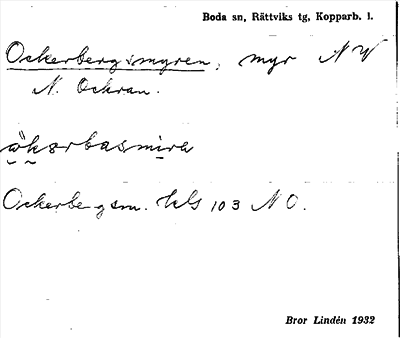 Boda sn, Rättviks tg, Kopparb. l.
Ockerbergsmyren, myr NW
N. Ockran.
åkərbasmira
Ockerbergsm. kls 103 NO.
Bror Lindén 1932